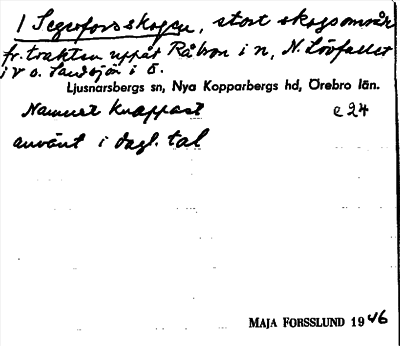 1 Segerforsskogen, stort skogsområde
fr. trakten uppåt Råbon i n, N. Lövfallet
i v o. Sandsjön i ö.
Ljusnarsbergs sn, Nya Kopparbergs hd, Örebro län.
Namnet knappast e 24
använt i dagl. tal
MAJA FORSSLUND 1946